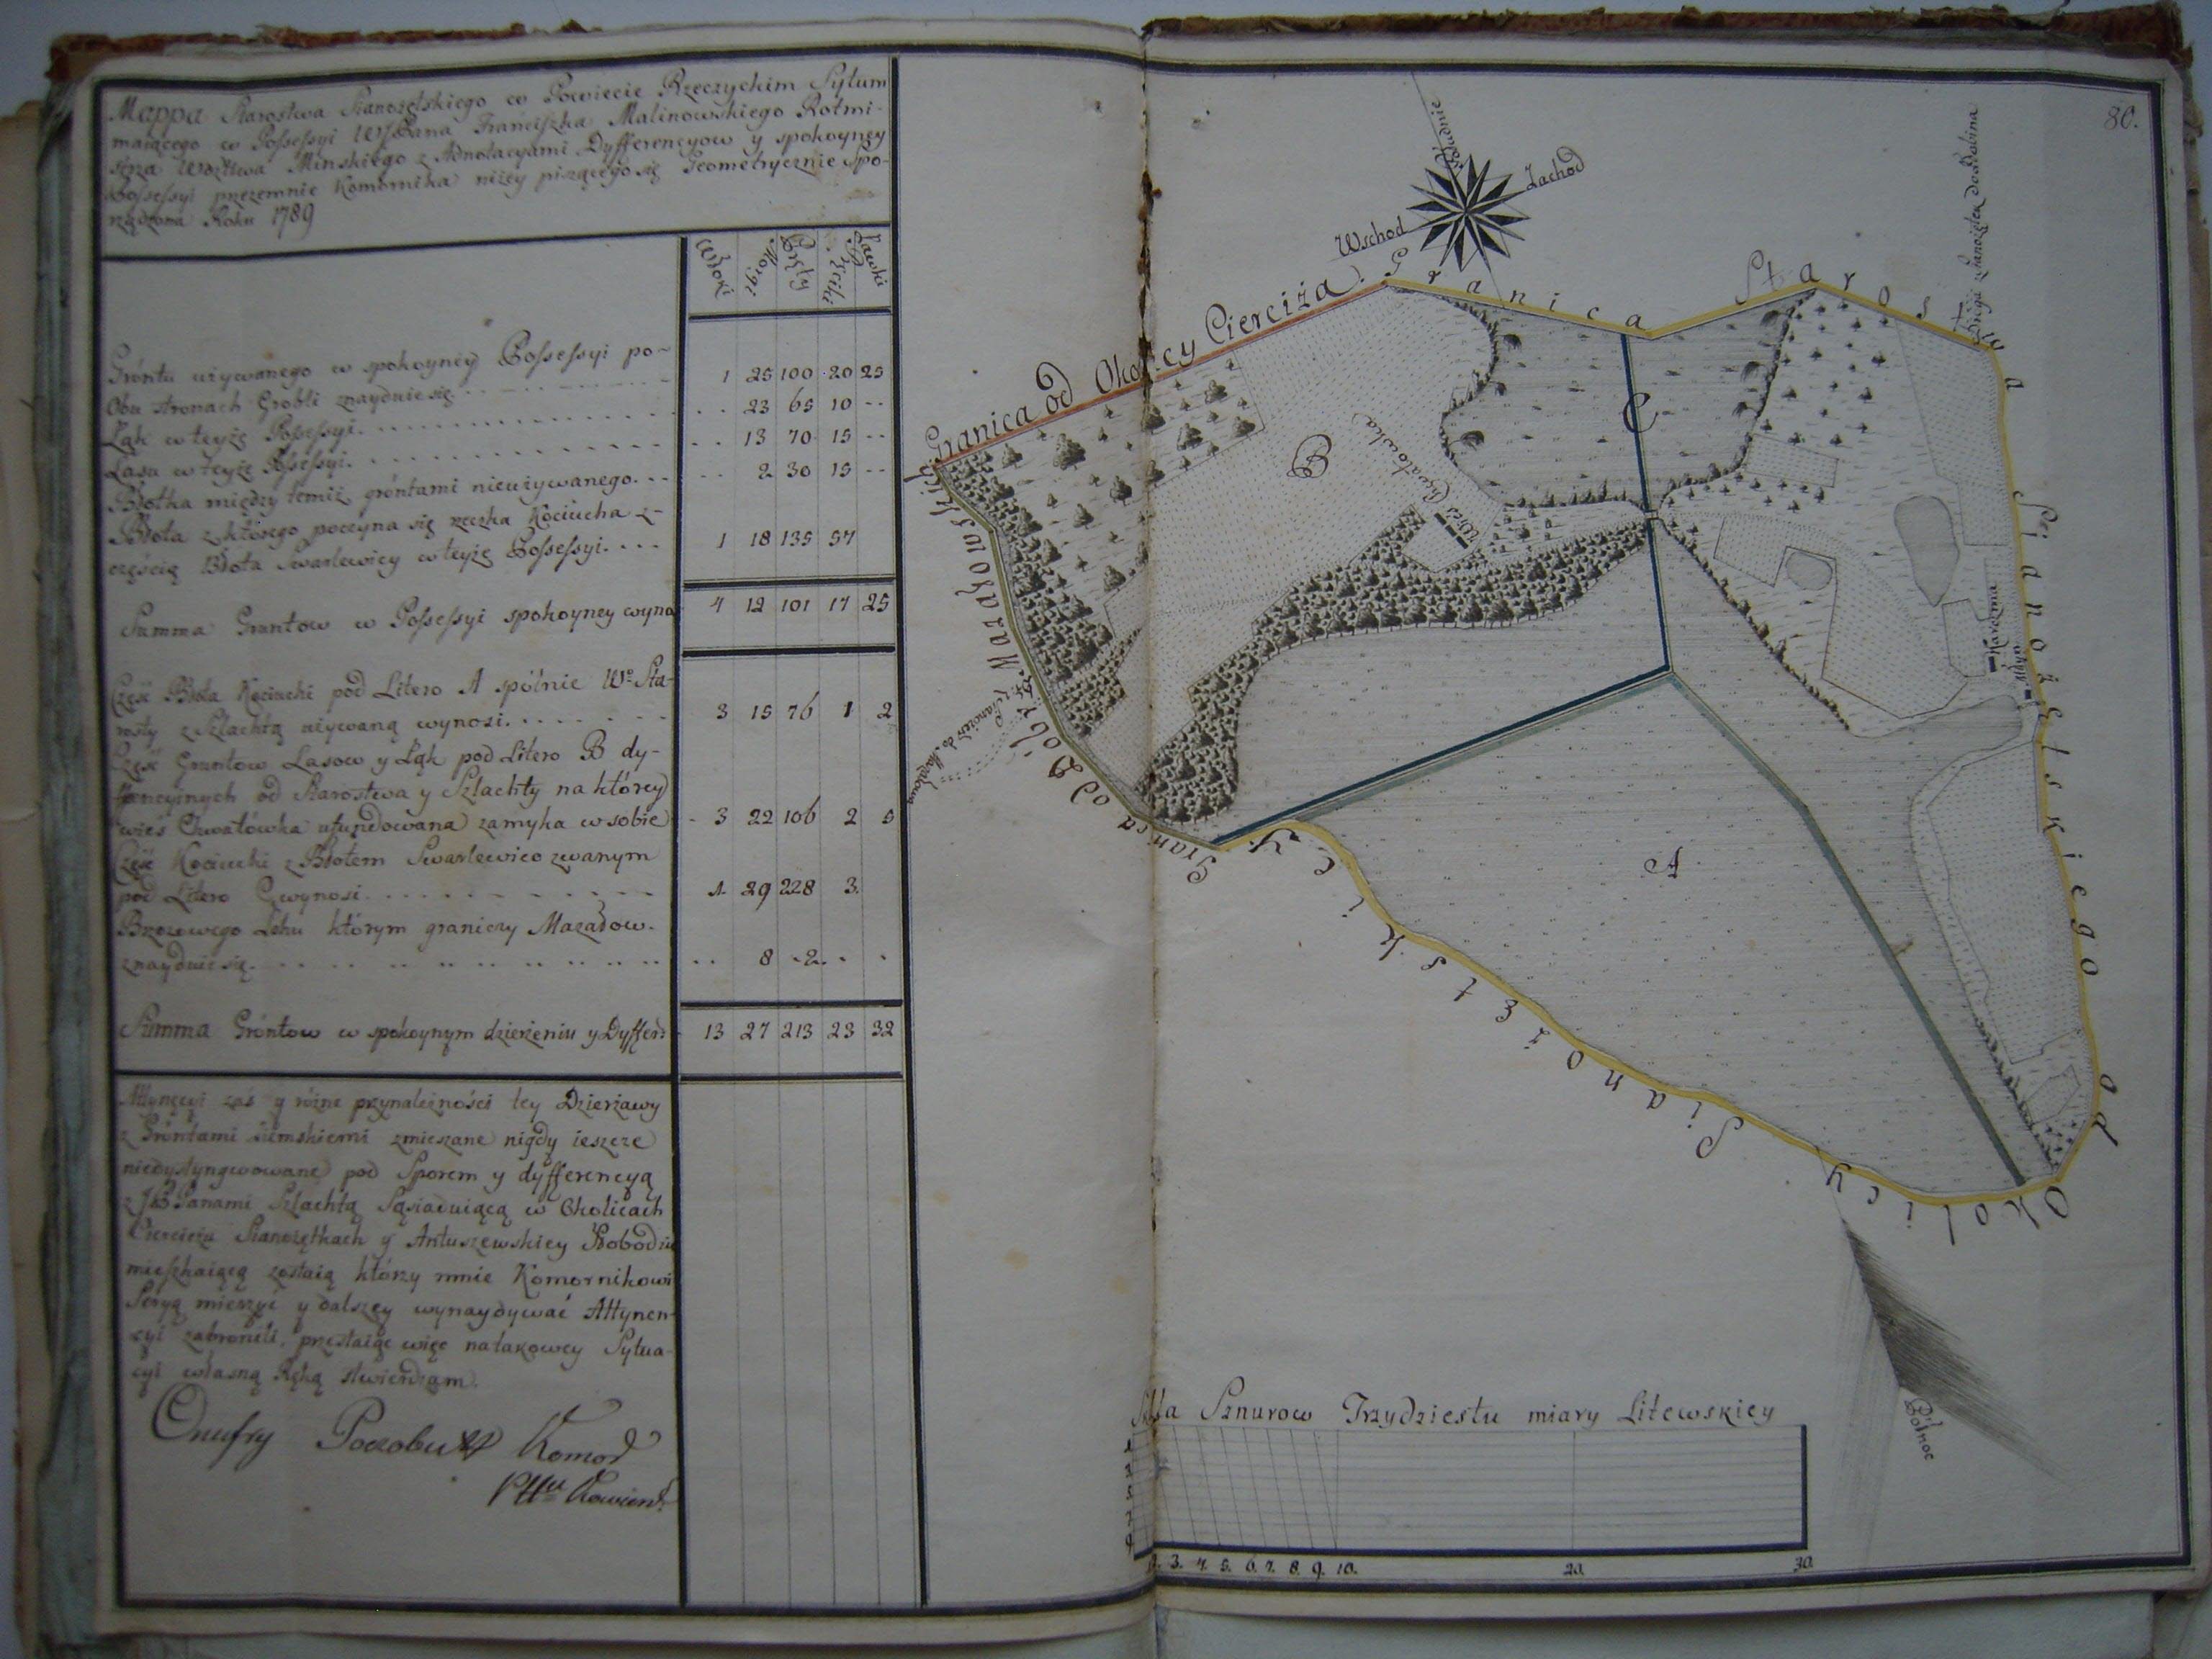 Mappa Starostwa Stanożętskiego w Powiecie Rzeczyckim Sytum
maiącego w Possessyi Pana Franciszka Malinowskiego Rotmi-
strza Wdztwa Minskiego z Adnotacyami Dyfferencyow y spokoyney
Possessyi przezemnie Komornika niżey piszącego się Geometrycznie Spo-
rządzona Roku 1789
Włoki Morgi Pręty Pręciki Ławki
Gróntu używanego w spokoyney Possessyi po-
Obu stronach Grobli znayduie się 1 25 100 20 25
Łąk w teyże Possessyi. 23 65 10
Lasu w teyże Possessyi. 13 70 15
Błotka między temiż gróntami nieużywanego. 2 30 15
Błota z którego poczyna się rzeczka Kociucha z-
częścią Błota w teyże Possessyi. 1 18 135 57
Summa Gruntow w Possessyi spokoyney wyno 4 12 101 17 25
Część Błota Kociuchi pod Litero A spólnie Wo Sta-
rosty z Szlachtą używaną wynosi. 3 15 76 1 2
Część Gruntow Lasow y Łąk pod Litero B dy-
fferencyinych od Starostwa y Szlachty na którey
wieś Chwatówka ufundowana zamyka w sobie 3 22 106 2 5
Część Kociuchi z Błotem zwanym
pod Litero C wynosi 1 29 228 3.
Brzozowego Lasu którym graniczy Mazałow.
znayduie się. 8 2
Summa Gróntow w spokoynym dzierżeniu y Dyffern 13 27 213 23 32
Attynęcyi zaś y różne przynależności tey Dzierżawy
z Gróntami ziemskiemi zmieszane nigdy ieszcze
niedystyngwowane pod Sporem y dyfferencyą
z Panami Szlachtą Sąsiaduiącą w Okolicach
Cierciża Stanożętkach y Antuszewskiey Słobodzie
mieszkaiącą zostaią którzy mnie Komornikowi
mierzyć y dalszey wynaydywać Attynen-
cyi zabronili, przestaiąc więc natakowey Sytua-
cyi własną Ręką stwierdzam.
Onufry Poczobutt Komor
Kowiens.
80.
Południe
Zachod
Wschod
Droga z Stanożętek do
Granica od Okolicy Cierciża.
Granica Starostwa Stanożętskiego od
Okolicy Stanożętskiey
Granica od Dóbr Mazałowskich
B
C
A
Wieś Chwatowka
Karczma
Młyn
Połnoc
Skala Sznurow Trzydziestu miary Litewskiey
2. 3. 4. 5. 6. 7. 8. 9. 10. 20. 30.